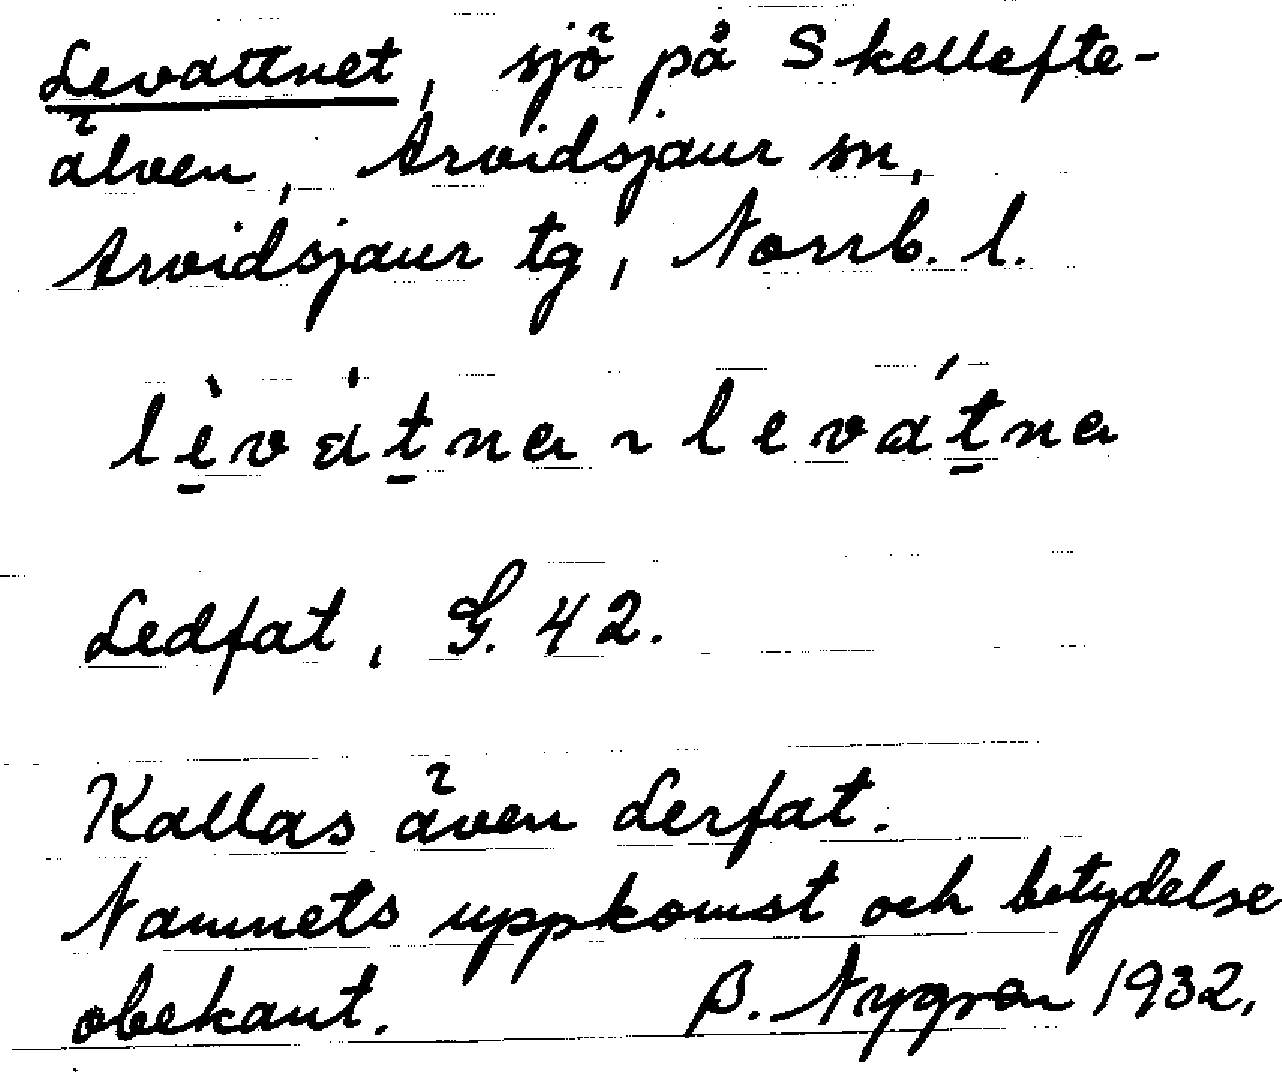 Levattnet, sjö på Skellefte-
älven, Arvidsjaur sn,
Arvidsjaur tg, Norrb. l.
lè̠vát̠na ~ levát̠na
Ledfat, G. 42.
Kallas även Lerfat.
Namnets uppkomst och betydelse
obekant. B. Nygren 1932.